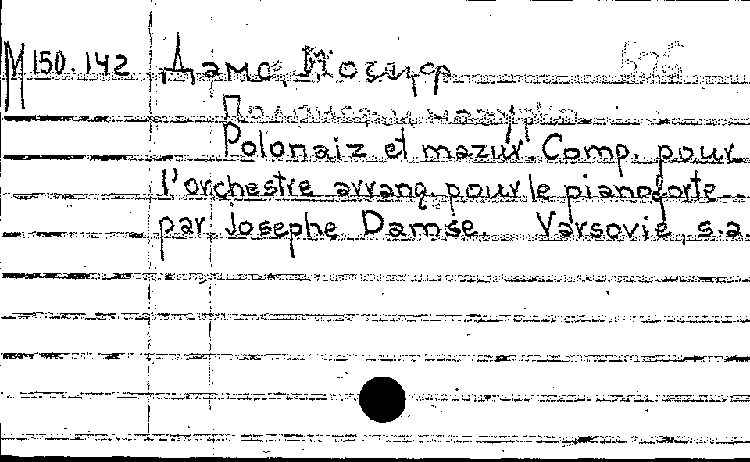 М 150.142 Дамс, Иосиф
Полонез и мазурка
Polonaiz et mazur. Comp. pour
l'orchestre arrang. pour le pianoforte...
par Josephe Damse. Varsovie, s.a.